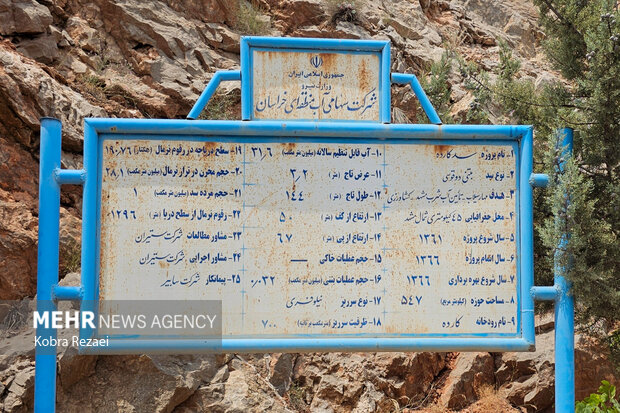 جمهوری اسلامی ایران
وزارت نیرو
شرکت سهامی آب منطقه‌ای خراسان
۱- نام پروژه سد کارده
۲- نوع سد بتنی دو قوسی
۳- هدف مهار سیلاب، تأمین آب شرب مشهد، کشاورزی
۴- محل جغرافیایی ۴۵ کیلومتری شمال مشهد
۵- سال شروع پروژه ۱۳۶۱
۶- سال اتمام پروژه ۱۳۶۶
۷- سال شروع بهره برداری ۱۳۶۶
۸- مساحت حوزه (کیلومتر مربع) ۵۴۷
۹- نام رودخانه کارده
۱۰- آب قابل تنظیم سالانه (میلیون متر مکعب) ۳۱/۶
۱۱- عرض تاج (متر) ۳/۲
۱۲- طول تاج (متر) ۱۴۴
۱۳- ارتفاع از کف (متر) ۵۰
۱۴- ارتفاع از پی (متر) ۶۷
۱۵- حجم عملیات خاکی —
۱۶- حجم عملیات بتنی (میلیون متر مکعب) ۰/۰۳۲
۱۷- نوع سرریز نیلوفری
۱۸- ظرفیت سرریز (متر مکعب بر ثانیه) ۷۰۰
۱۹- سطح دریاچه در رقوم نرمال (هکتار) ۱۹۰/۷۶
۲۰- حجم مخزن در تراز نرمال (میلیون متر مکعب) ۲۸/۱
۲۱- حجم مرده سد (میلیون متر مکعب) ۱
۲۲- رقوم نرمال از سطح دریا (متر) ۱۲۹۶
۲۳- مشاور مطالعات شرکت ستیران
۲۴- مشاور اجرایی شرکت ستیران
۲۵- پیمانکار شرکت سابیر
MEHR NEWS AGENCY
Kobra Rezaei